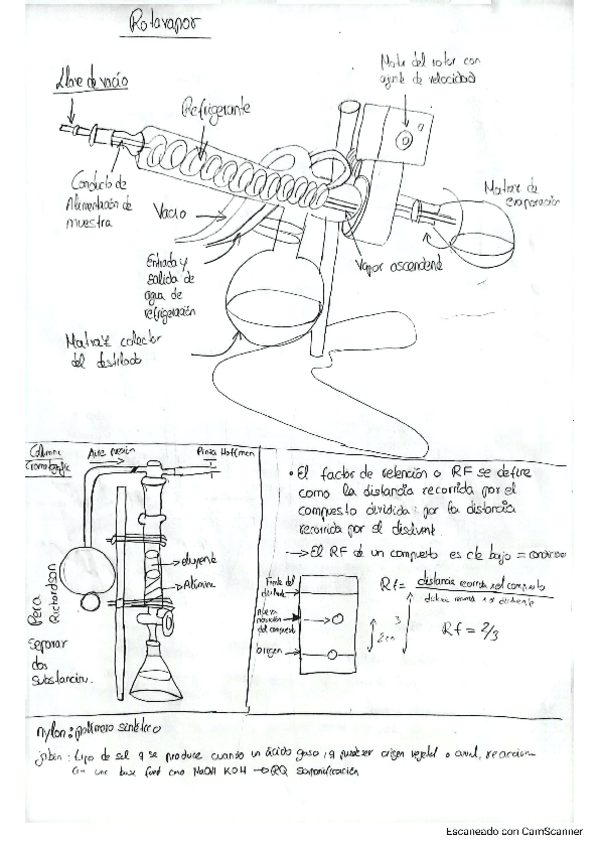 Rotavapor
Llave de vacío
Refrigerante
Motor del rotor con
ajuste de velocidad
Conducto de
Alimentación de
muestra
Vacio
Matraz de
evaporación
Entrada y
salida de
agua de
refrigeración
Vapor ascendente
Matraz colector
del destilado
Columna
Cromatografic
Aire presión
Pinza Hoffmen
Pera
Richardson
eluyente
Alumina
Separar
dos
substancias.
• El factor de retención o RF se define
como la distancia recorrida por el
compuesto dividida por la distancia
recorrida por el disolvent
→ El RF de un compuesto es de bajo =
Frente del
nueva
posición
del compuesto
origen
2cm
3
Rf = distancia recorrida x el compuesto
Rf = 2/3
nylon: polímero sintético
jabón: tipo de sal q se produce cuando un ácido graso, q puede ser origen vegetal o animal, reacciona
con una base NaOH KOH → RQ saponificación
Escaneado con CamScanner